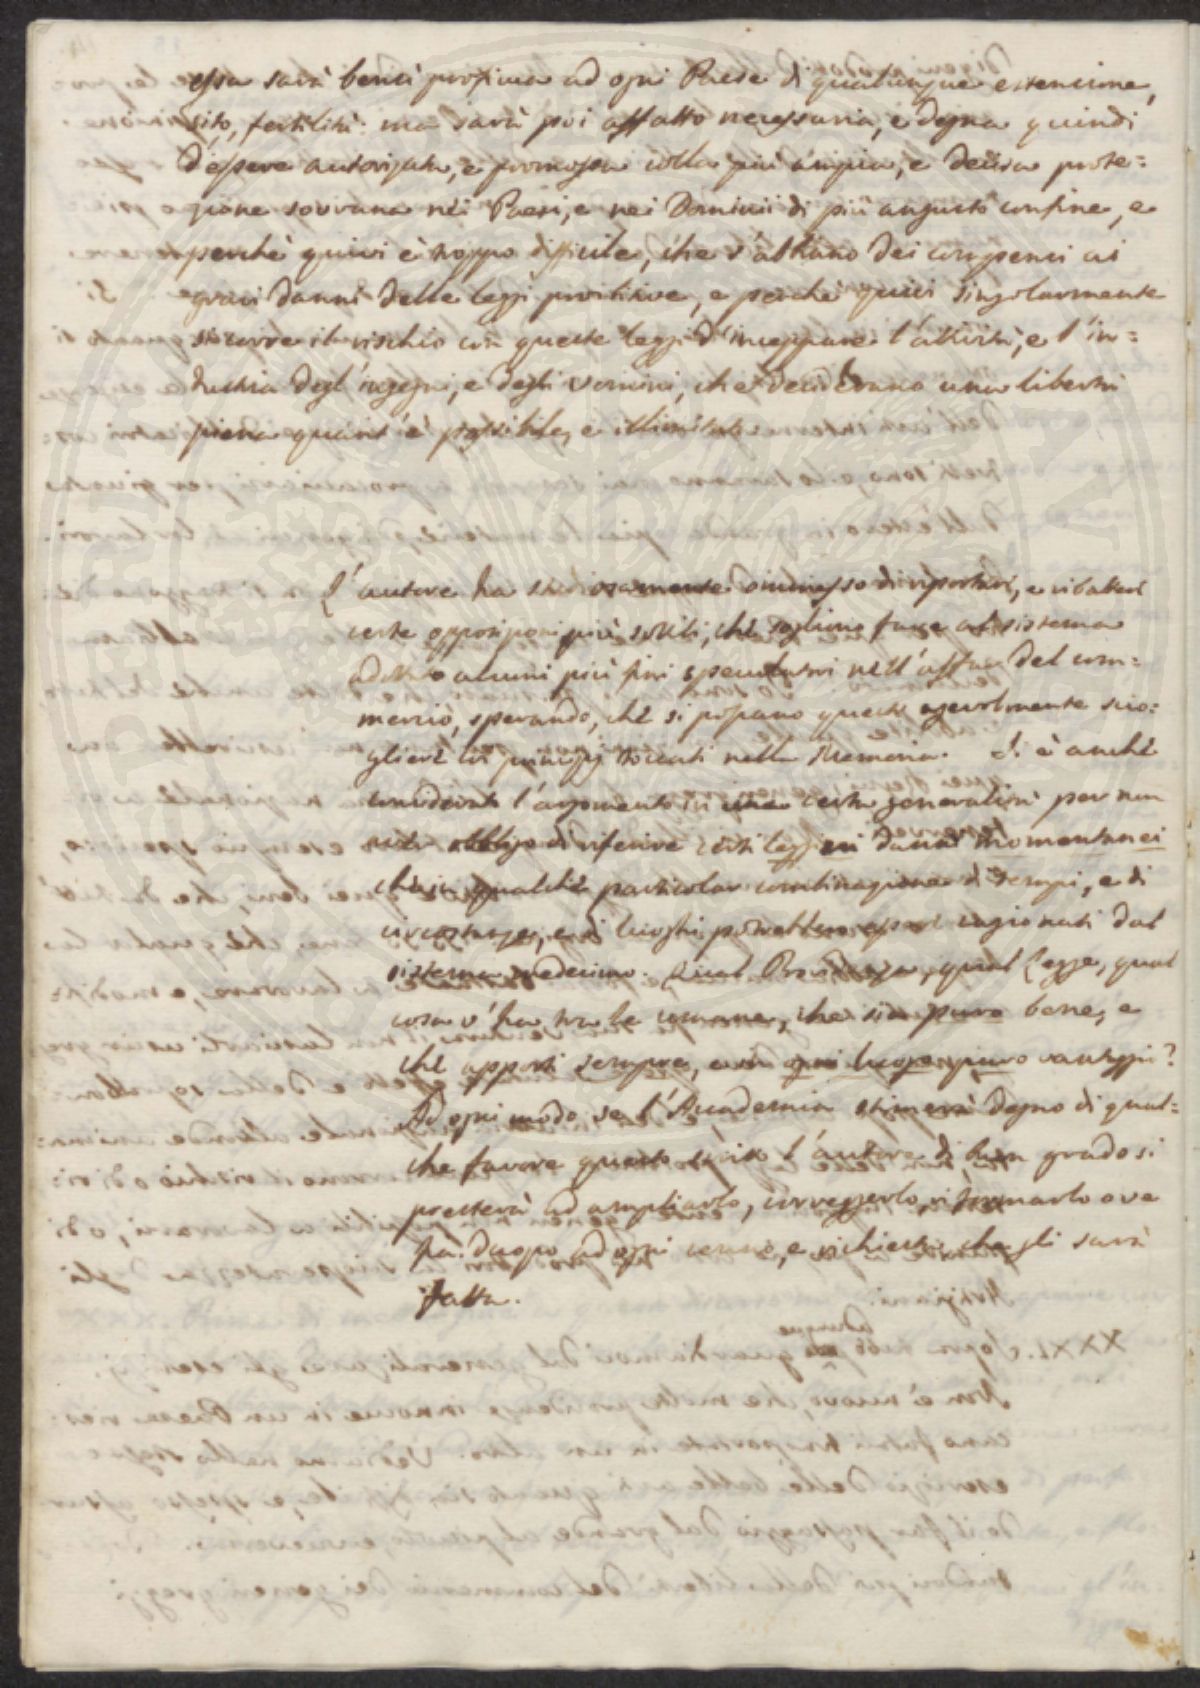 essa sarà bensì proficua ad ogni Paese di qualunque estensione,
sito, fertilità: ma sarà poi affatto necessaria, e degna quindi
d'essere autorizzata, e promossa colla più ampia, e decisa prote=
zione sovrana nei Paesi, e nei Dominii di più angusto confine, e
perchè quivi è troppo difficile, che s'abbiano dei compensi ai
gravi danni delle leggi proibitive, e perchè quivi singolarmente
si corre il rischio con queste leggi d'inceppare l'attività, e l'in=
dustria degl'ingegni, e degli uomini, che desiderano una libertà
piena quant'è possibile, e illimitata.
L'autore ha studiosamente ommesso di riportare, e ribattere
certe opposizioni più sottili, che sogliono fare al sistema
addotto alcuni più fini speculatori nell'affare del com=
mercio, sperando, che si possano queste agevolmente scio=
gliere coi principj toccati nella Memoria. Si è anche
considerato l'argomento in una certa generalità per non
obbligo di riferire certi leggieri danni momentanei
che in qualche particolar combinazione di tempi, e di
circostanze, e di luoghi potrebbero essere cagionati dal
sistema medesimo. Qual Provvidenza, qual Legge, qual
cosa v'ha tra le umane, che sia puro bene, e
che apporti sempre, e in ogni luogo puro vantaggi?
Ad ogni modo se l'Accademia stimerà degno di qual=
che favore questo scritto l'autore di buon grado si
presterà ad ampliarlo, correggerlo, riformarlo ove
fia d'uopo ad ogni cenno, e richiesta che gli sarà
fatta.